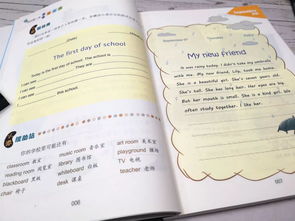 The first day of school
Today is the first day of school. The school is
I can see
They are
I can see
I can see
加油站
你的学校里可能还有:
classroom 教室
music room 音乐室
art room 美术室
reading room 阅览室
library 图书馆
playground 操场
blackboard 黑板
whiteboard 白板
TV 电视
chair 椅子
desk 课桌
teacher 老师
006
My new friend
It was rainy today. I didn't take my umbrella
with me. My new friend, Lily, took me home.
She is a beautiful girl. She's seven years old.
She's tall. She has long hair. Her eyes are big.
But her mouth is small. She is a kind girl. We
often study together. I like her.